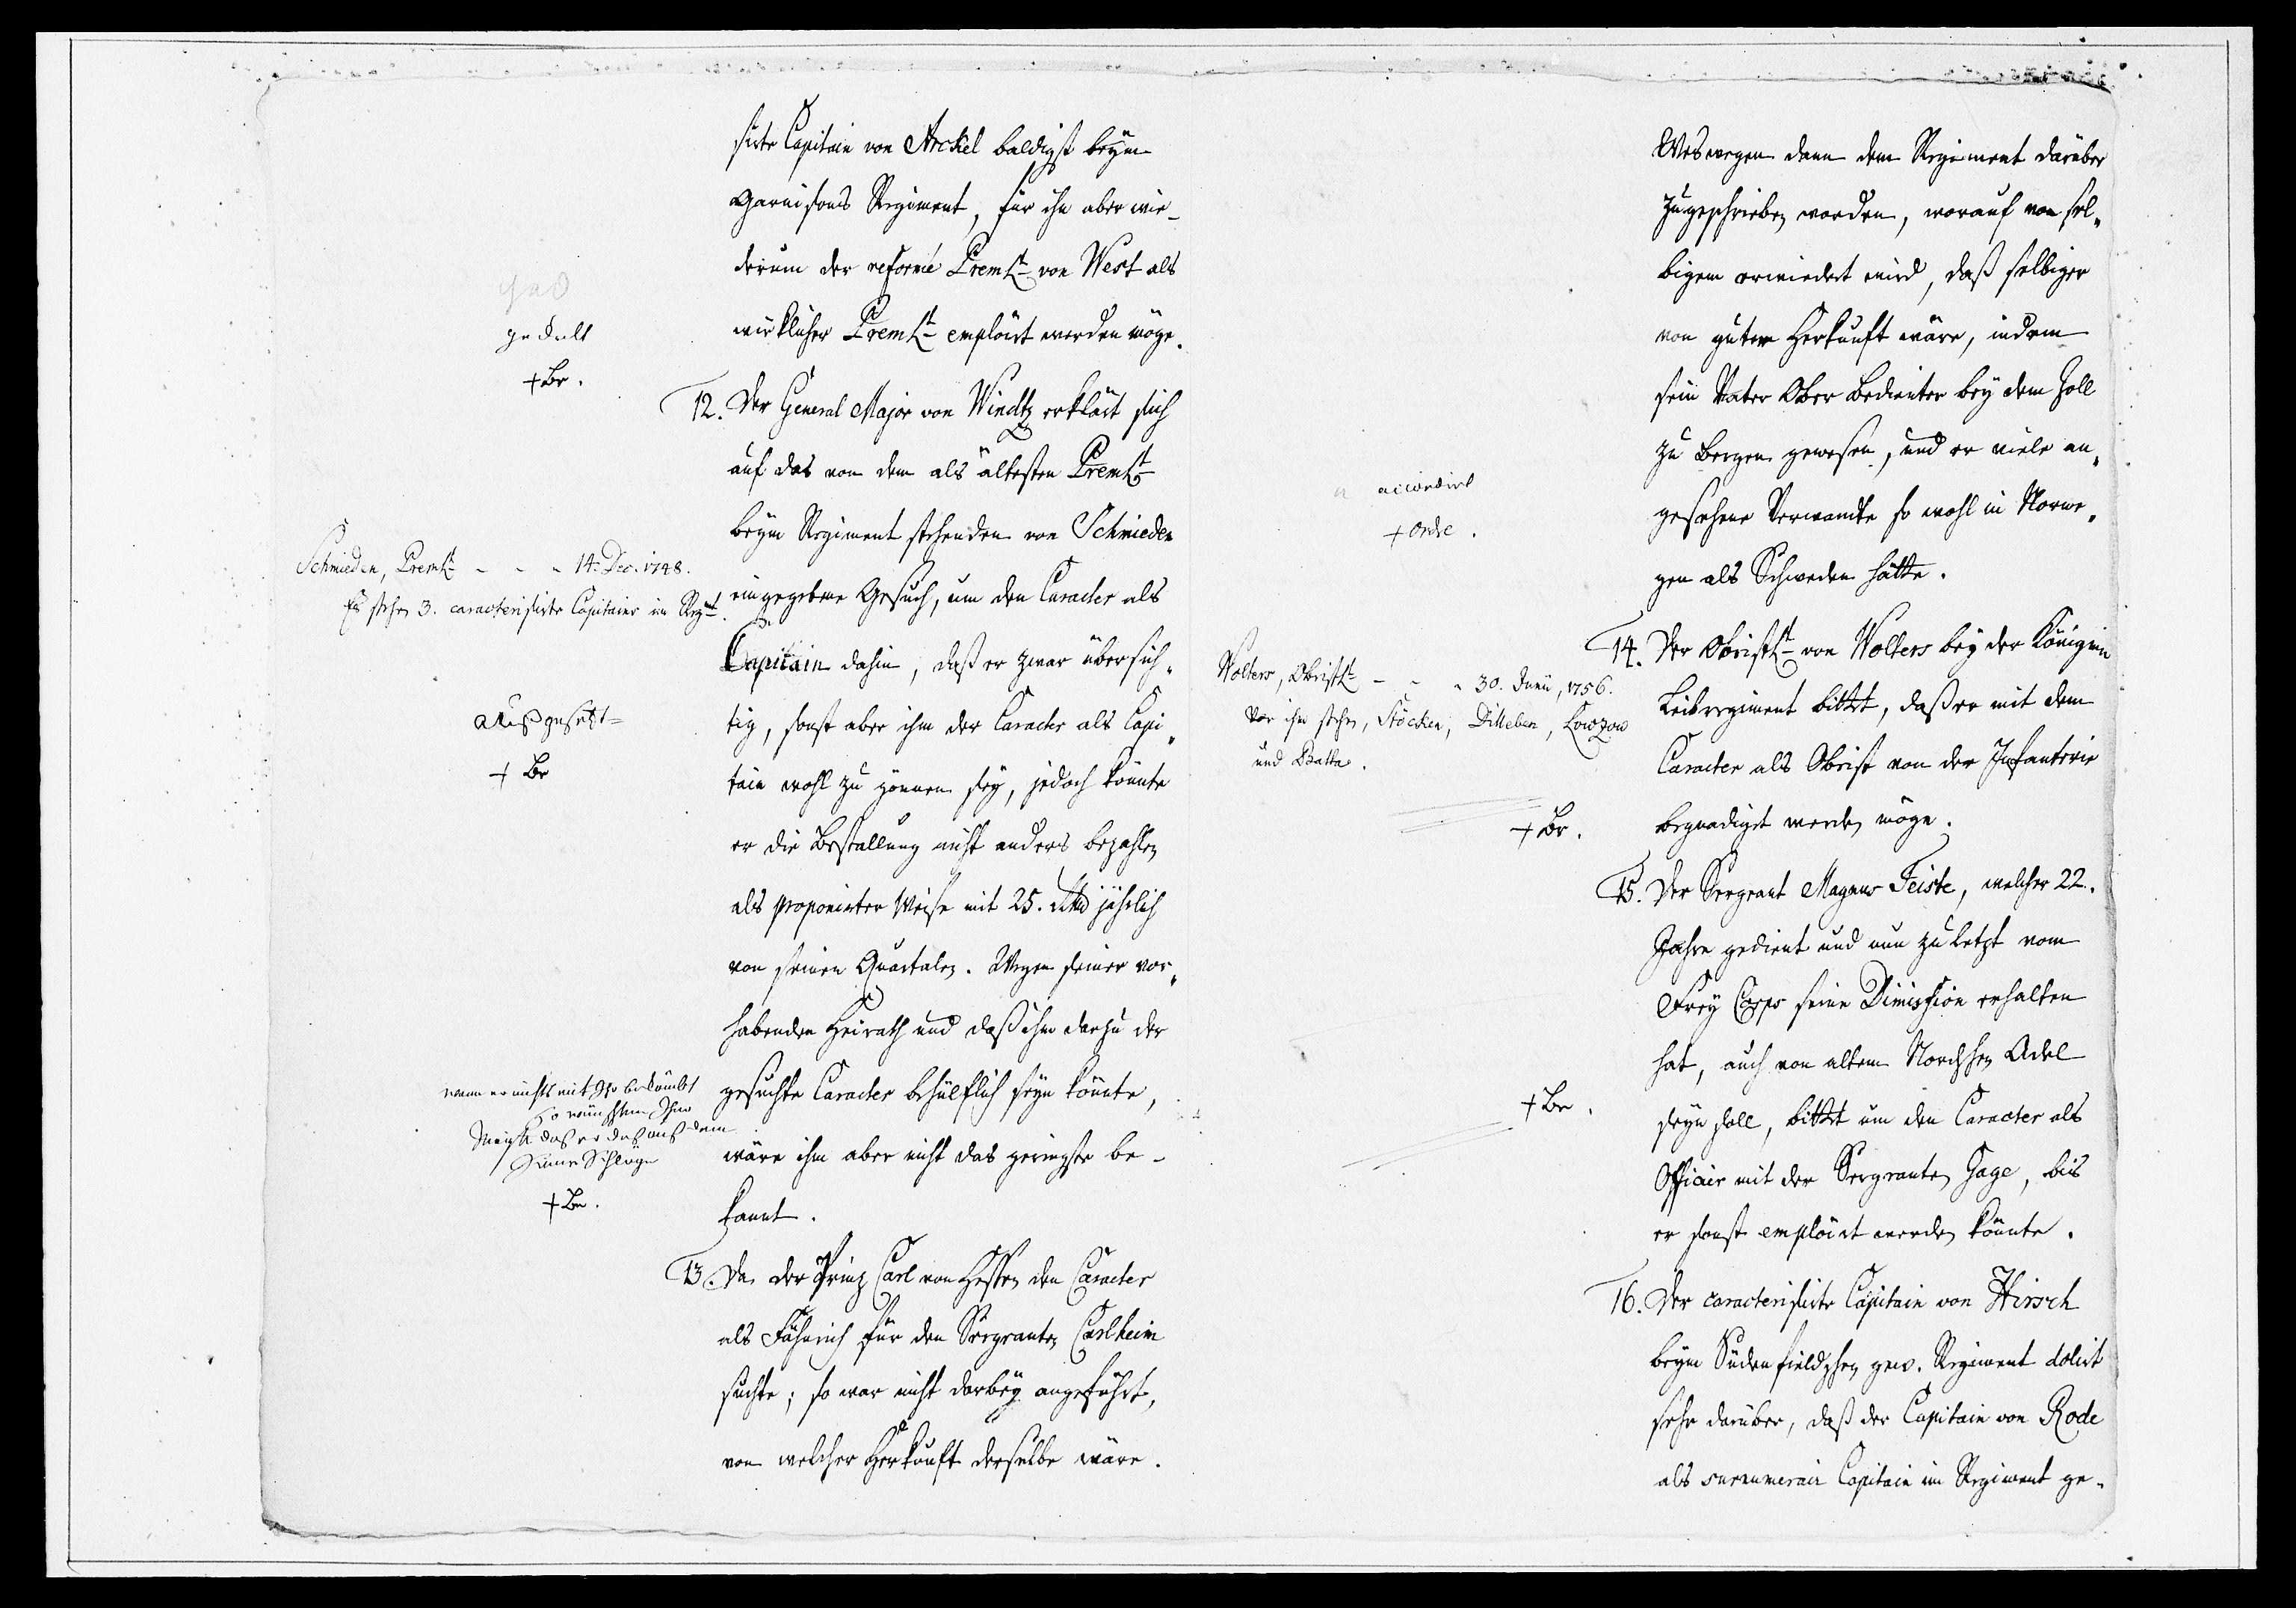 sirte Capitain von Arckel baldigst beym
Garnisons Regiment, für ihn aber wie-
derum der reformé PremLt von West als
würklicher PremLt emploirt werden möge.
gedult
+ Br.
12. Der General Major von Windtz erklärt sich
auf das von dem als ältesten PremLt
beym Regiment stehenden von Schmieden
Schmieden, PremLt - - - 14. Dec. 1748.
Es stehen 3. caracterisirte Capitains im Regmt.
eingegebene Gesuch, um den Caracter als
Capitain dahin, daß er zwar übersich-
tig, sonst aber ihm der Caracter als Capi-
außgesetzt
+ Br
tain wohl zu gönnen sey, jedoch könnte
er die Bestallung nicht anders bezahlen
als proponirter Weise mit 25. Rthlr jährlich
von seinen Quartalen. Wegen seiner vor-
habenden Heirath und daß ihm darzu der
gesuchte Caracter behülflich seyn könnte,
wann er nichts mit Ihr bekömbt
so
daß er daß auß dem
Sinne Schlage
+ Br.
wäre ihm aber nicht das geringste be-
kannt.
13. Da der Prinz Carl von Hessen den Caracter
als Fähnrich für den Sergeanten Carlheim
suchte; so war nicht darbey angeführt,
von welcher Herkunft derselbe wäre.
Weswegen dann dem Regiment darüber
zugeschrieben worden, worauf von sel-
bigem erwiedert wird, daß selbiger
von guter Herkunft wäre, indem
sein Vater Ober Bedienter bey dem Zoll
zu Bergen gewesen, und er viele an-
gesehene Verwandte so wohl in Norwe-
gen als Schweden hätte.
accordirt
+ Ordre.
14. Der ObristLt von Wolters bey der Königin
Leibregiment bittet, daß er mit dem
Caracter als Obrist von der Infanterie
begnadiget werden möge.
Wolters, ObristLt - - - 30. Junii, 1756.
Vor ihm stehen, Stöcken, Ditleben, Lowzow
und Batta.
+ Br.
15. Der Sergeant Magnus Feiste, welcher 22.
Jahre gedient und nun zuletzt vom
Frey Corps seine Dimission erhalten
hat, auch von altem Nordschen Adel
seyn soll, bittet um den Caracter als
Officier mit der Sergeanten Gage, bis
er sonst emploirt werden könnte.
+ Br.
16. Der caracterisirte Capitain von Hirsch
beym Südenfieldschen gew. Regiment dolirt
sehr darüber, daß der Capitain von Rode
als surnumerair Capitain im Regiment ge-